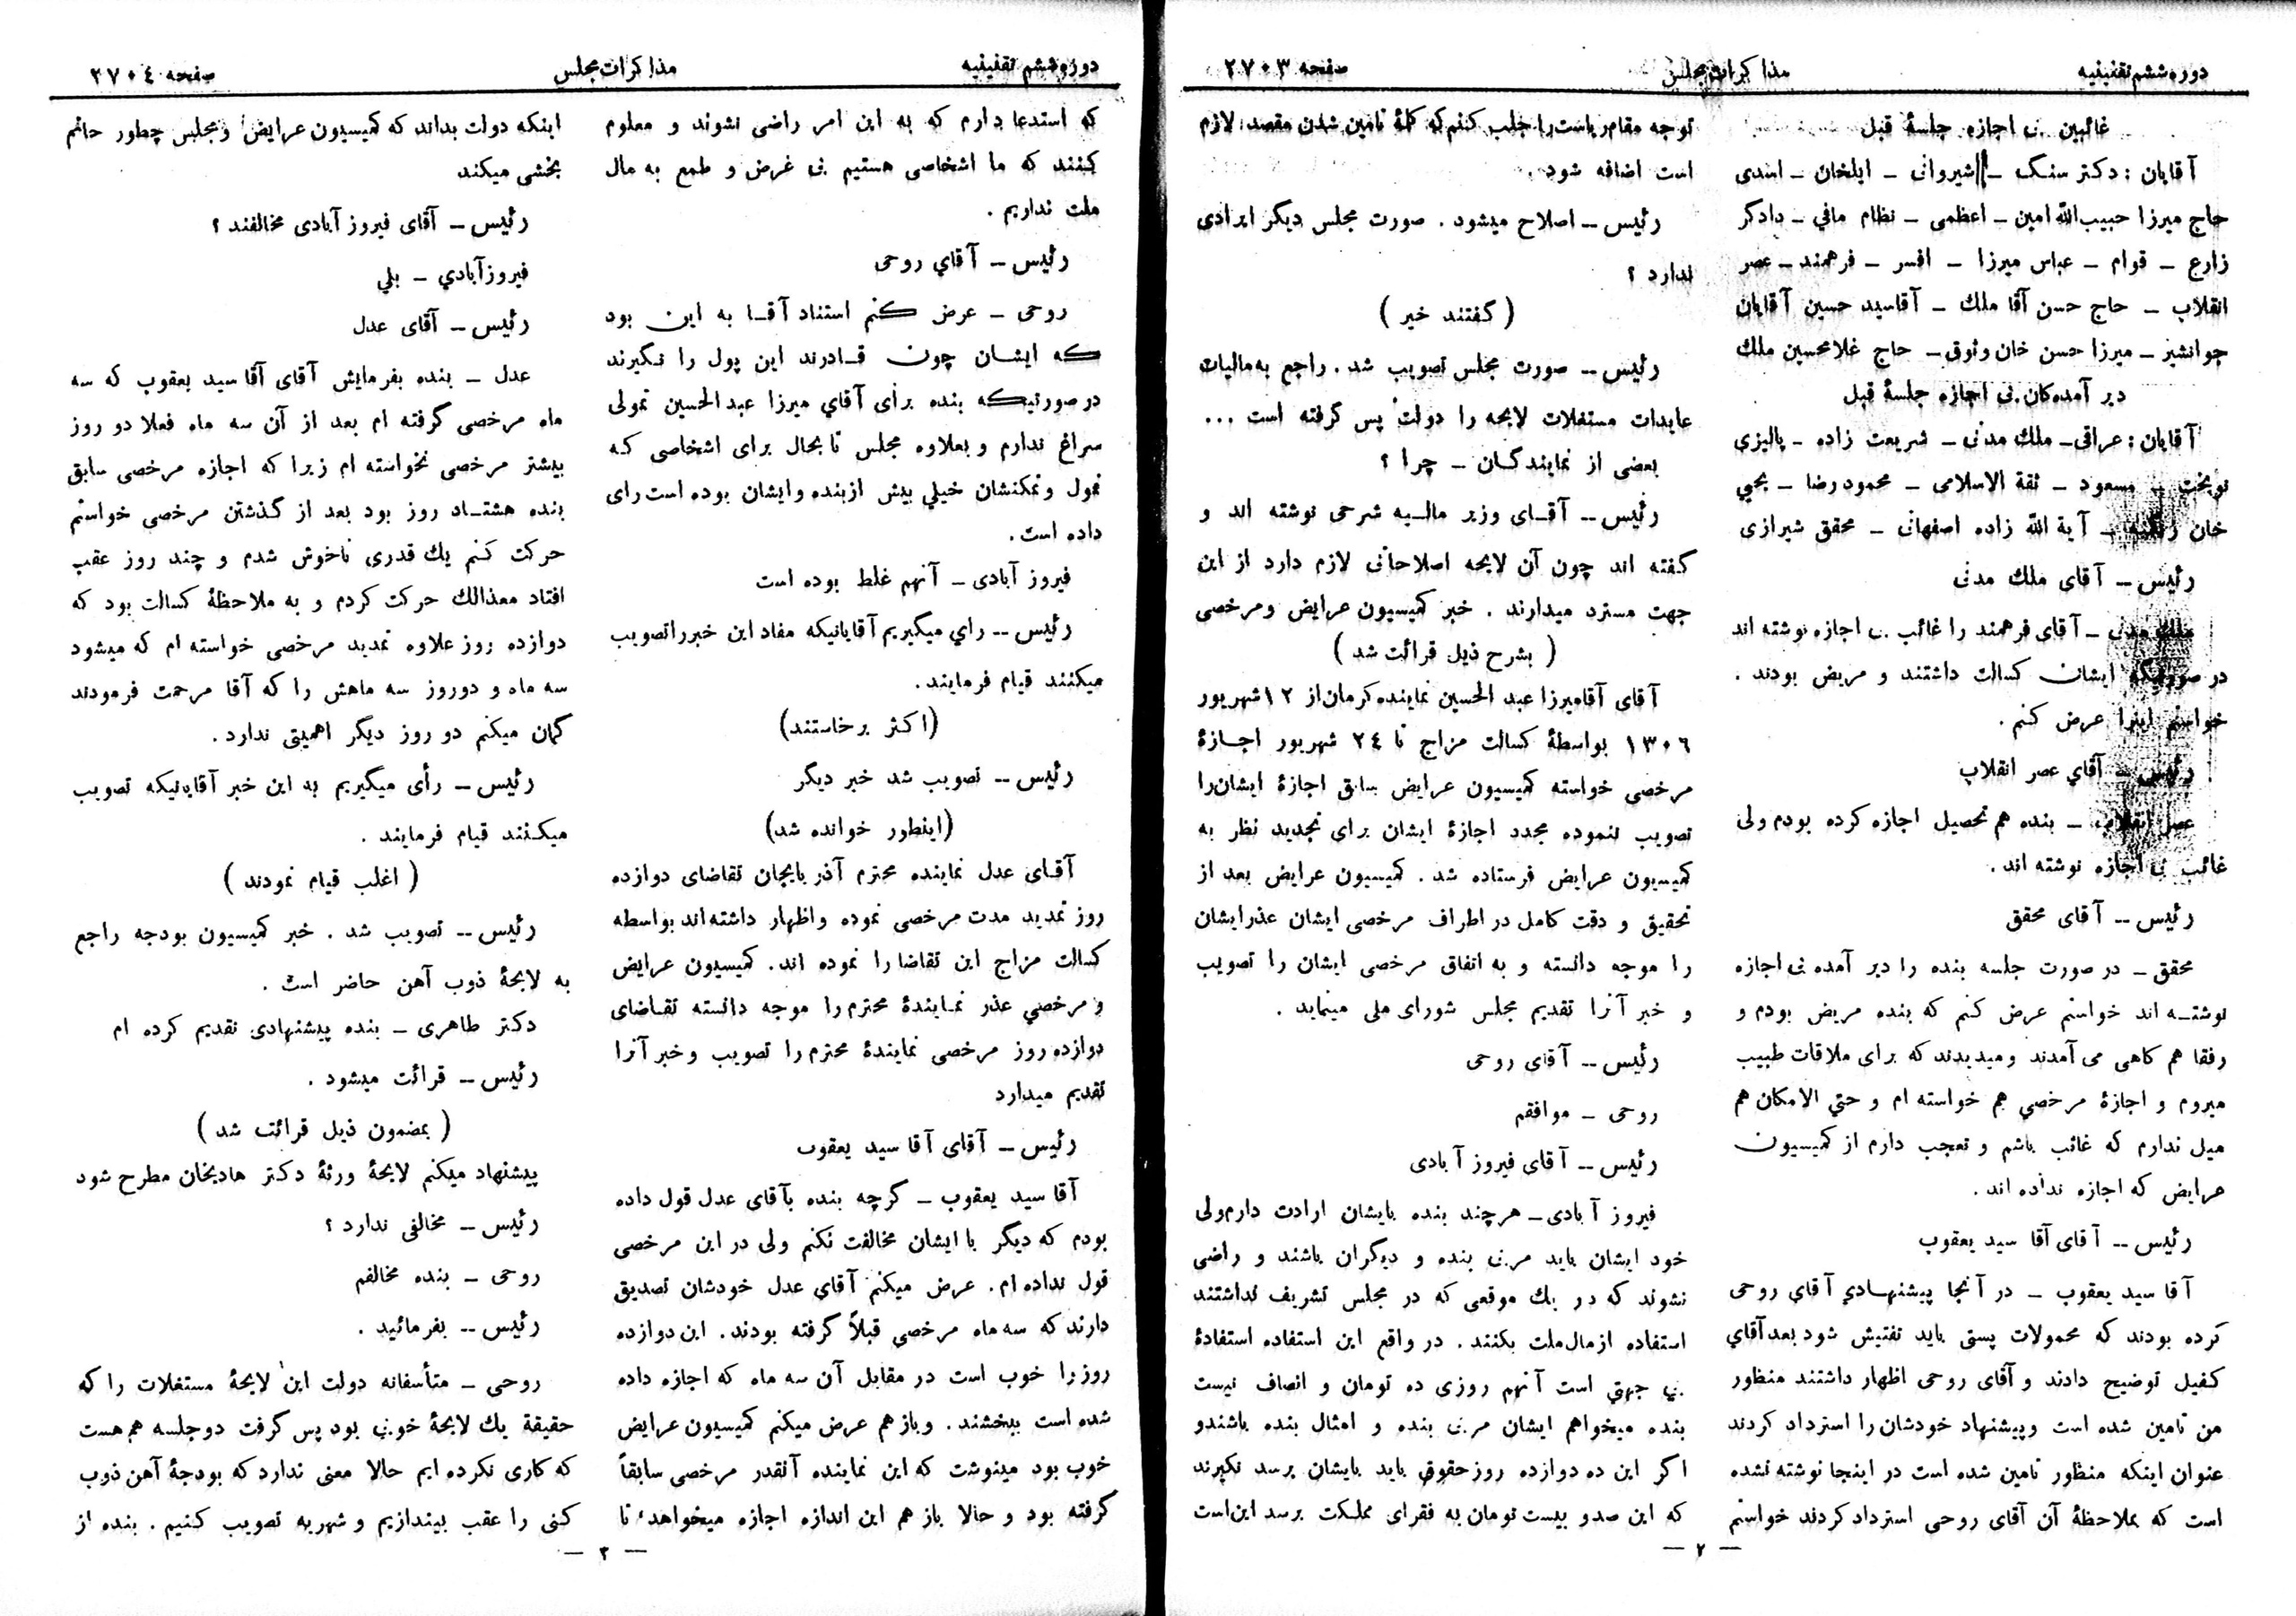 دوره ششم تقنینیه
مذاکرات مجلس
صفحه ۲۷۰۳
غائبین بی اجازه جلسهٔ قبل
آقایان : دکتر سنگ – شیروانی – ایلخان – اسدی
حاج میرزا حبیب الله امین – اعظمی – نظام مافی – دادگر
زارع – قوام – عباس میرزا – افسر – فرهمند – عصر
انقلاب – حاج حسن آقا ملک – آقاسید حسین آقایان
جوانشیر – میرزا حسن خان وثوق – حاج غلامحسین ملک
دیر آمدەکان بی اجازه جلسهٔ قبل
آقایان : عراقی – ملک مدنی – شریعت زاده – پالیزی
نوبخت – مسعود – ثقة الاسلامی – محمود رضا – یحیی
خان زنگنه – آیة الله زاده اصفهانی – محقق شیرازی
رئیس – آقای ملک مدنی
ملک مدنی – آقای فرهمند را غائب بی اجازه نوشته اند
در صورتیکه ایشان کسالت داشتند و مریض بودند .
خواستم اینرا عرض کنم .
رئیس – آقای عصر انقلاب
عصر انقلاب – بنده هم تحصیل اجازه کرده بودم ولی
غائب بی اجازه نوشته اند .
رئیس – آقای محقق
محقق – در صورت جلسه بنده را دیر آمده بی اجازه
نوشته اند خواستم عرض کنم که بنده مریض بودم و
رفقا هم کاهی می آمدند و میدیدند که برای ملاقات طبیب
میروم و اجازهٔ مرخصی هم خواسته ام و حتی الامکان هم
میل ندارم که غائب باشم و تعجب دارم از کمیسیون
عرایض که اجازه نداده اند .
رئیس – آقای آقا سید یعقوب
آقا سید یعقوب – در آنجا پیشنهادی آقای روحی
کرده بودند که محمولات پستی باید تفتیش شود بعد آقای
کفیل توضیح دادند و آقای روحی اظهار داشتند منظور
من تامین شده است و پیشنهاد خودشان را استرداد کردند
عنوان اینکه منظور تامین شده است در اینجا نوشته نشده
است که بملاحظهٔ آن آقای روحی استرداد کردند خواستم
توجه مقام ریاست را جلب کنم که کلمهٔ تامین شدن مقصد لازم
است اضافه شود .
رئیس – اصلاح میشود . صورت مجلس دیگر ایرادی
ندارد ؟
( گفتند خیر )
رئیس – صورت مجلس تصویب شد . راجع به مالیات
عایدات مستغلات لایحه را دولت پس گرفته است ...
بعضی از نمایندگان – چرا ؟
رئیس – آقای وزیر مالیه شرحی نوشته اند و
گفته اند چون آن لایحه اصلاحاتی لازم دارد از این
جهت مسترد میدارند . خبر کمیسیون عرایض و مرخصی
( بشرح ذیل قرائت شد )
آقای آقامیرزا عبد الحسین نماینده کرمان از ۱۲ شهریور
۱۳۰۶ بواسطهٔ کسالت مزاج تا ۲۴ شهریور اجازهٔ
مرخصی خواسته کمیسیون عرایض سابق اجازهٔ ایشان را
تصویب ننموده مجدد اجازهٔ ایشان برای تجدید نظر به
کمیسیون عرایض فرستاده شد . کمیسیون عرایض بعد از
تحقیق و دقت کامل در اطراف مرخصی ایشان عذر ایشان
را موجه دانسته و به اتفاق مرخصی ایشان را تصویب
و خبر آنرا تقدیم مجلس شورای ملی مینماید .
رئیس – آقای روحی
روحی – موافقم
رئیس – آقای فیروز آبادی
فیروز آبادی – هرچند بنده بایشان ارادت دارم ولی
خود ایشان باید مربی بنده و دیگران باشند و راضی
نشوند که در یک موقعی که در مجلس تشریف نداشتند
استفاده از مال ملت بکنند . در واقع این استفاده استفادهٔ
بی جهتی است آنهم روزی ده تومان و انصاف نیست
بنده میخواهم ایشان مربی بنده و امثال بنده باشند و
اگر این ده دوازده روز حقوق باید بایشان برسد نگیرند
که این صد و بیست تومان به فقرای مملکت برسد این است
— ۲ —
دوره ششم تقنینیه
مذاکرات مجلس
صفحه ۲۷۰۴
که استدعا دارم که به این امر راضی نشوند و معلوم
کنند که ما اشخاصی هستیم بی غرض و طمع به مال
ملت نداریم .
رئیس – آقای روحی
روحی – عرض کنم استناد آقا به این بود
که ایشان چون قادرند این پول را نگیرند
در صورتیکه بنده برای آقای میرزا عبد الحسین تمولی
سراغ ندارم و بعلاوه مجلس تا بحال برای اشخاصی که
تمول و تمکنشان خیلی بیش از بنده و ایشان بوده است رای
داده است .
فیروز آبادی – آنهم غلط بوده است
رئیس – رای میگیریم آقایانیکه مفاد این خبر را تصویب
میکنند قیام فرمایند .
(اکثر برخاستند)
رئیس – تصویب شد خبر دیگر
(اینطور خوانده شد)
آقای عدل نماینده محترم آذربایجان تقاضای دوازده
روز تمدید مدت مرخصی نموده و اظهار داشته اند بواسطه
کسالت مزاج این تقاضا را نموده اند . کمیسیون عرایض
و مرخصی عذر نمایندهٔ محترم را موجه دانسته تقاضای
دوازده روز مرخصی نمایندهٔ محترم را تصویب و خبر آنرا
تقدیم میدارد
رئیس – آقای آقا سید یعقوب
آقا سید یعقوب – گرچه بنده بآقای عدل قول داده
بودم که دیگر با ایشان مخالفت نکنم ولی در این مرخصی
قول نداده ام . عرض میکنم آقای عدل خودشان تصدیق
دارند که سه ماه مرخصی قبلاً گرفته بودند . این دوازده
روز را خوب است در مقابل آن سه ماه که اجازه داده
شده است ببخشند . و باز هم عرض میکنم کمیسیون عرایض
خوب بود مینوشت که این نماینده آنقدر مرخصی سابقاً
گرفته بود و حالا باز هم این اندازه اجازه میخواهد تا
اینکه دولت بداند که کمیسیون عرایض و مجلس چطور حاتم
بخشی میکند
رئیس – آقای فیروز آبادی مخالفند ؟
فیروزآبادی – بلی
رئیس – آقای عدل
عدل – بنده بفرمایش آقای آقا سید یعقوب که سه
ماه مرخصی گرفته ام بعد از آن سه ماه فعلا دو روز
بیشتر مرخصی نخواسته ام زیرا که اجازه مرخصی سابق
بنده هشتاد روز بود بعد از گذشتن مرخصی خواستم
حرکت کنم یک قدری ناخوش شدم و چند روز عقب
افتاد معذالک حرکت کردم و به ملاحظهٔ کسالت بود که
دوازده روز علاوه تمدید مرخصی خواسته ام که میشود
سه ماه و دوروز سه ماهش را که آقا مرحمت فرمودند
گمان میکنم دو روز دیگر اهمیتی ندارد .
رئیس – رأی میگیریم به این خبر آقایانیکه تصویب
میکنند قیام فرمایند .
( اغلب قیام نمودند )
رئیس – تصویب شد . خبر کمیسیون بودجه راجع
به لایحهٔ ذوب آهن حاضر است .
دکتر طاهری – بنده پیشنهادی تقدیم کرده ام
رئیس – قرائت میشود .
( بمضمون ذیل قرائت شد )
پیشنهاد میکنم لایحهٔ ورثهٔ دکتر هادیخان مطرح شود
رئیس – مخالفی ندارد ؟
روحی – بنده مخالفم
رئیس – بفرمائید .
روحی – متأسفانه دولت این لایحهٔ مستغلات را که
حقیقة یک لایحهٔ خوبی بود پس گرفت دو جلسه هم هست
که کاری نکرده ایم حالا معنی ندارد که بودجهٔ آهن ذوب
کنی را عقب بیندازیم و شهریه تصویب کنیم . بنده از
— ۳ —